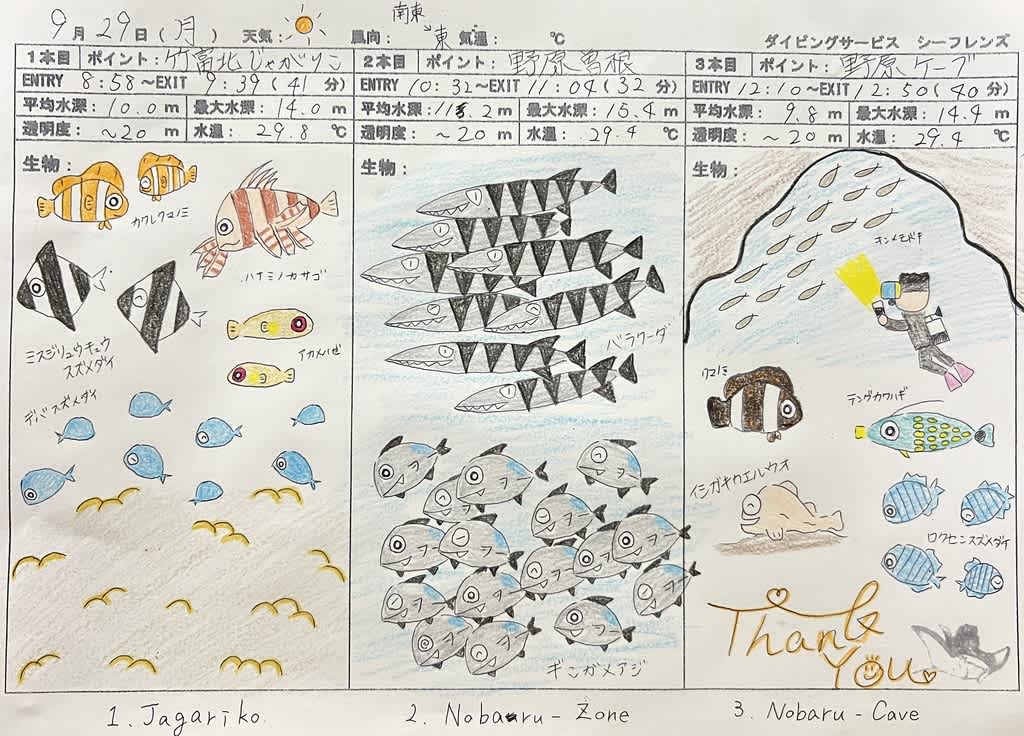 南東
9月29日(月) 天気: 風向: 東 気温: ℃
ダイビングサービス シーフレンズ
1本目 ポイント: 竹富北じゃがりこ
ENTRY 8:58~EXIT 9:39(41分)
平均水深: 10.0 m 最大水深: 14.0 m
透明度: ~20 m 水温: 29.8 ℃
生物:
カクレクマノミ
ハナミノカサゴ
ミスジリュウキュウ
スズメダイ
アカメハゼ
デバスズメダイ
1. Jagariko
2本目 ポイント: 野原曽根
ENTRY 10:32~EXIT 11:04(32分)
平均水深: 11.2 m 最大水深: 15.4 m
透明度: ~20 m 水温: 29.4 ℃
生物:
バラクーダ
ギンガメアジ
2. Nobaru - Zone
3本目 ポイント: 野原ケーブ
ENTRY 12:10~EXIT 12:50(40分)
平均水深: 9.8 m 最大水深: 14.4 m
透明度: ~20 m 水温: 29.4 ℃
生物:
キンメモドキ
クマノミ
テングカワハギ
イシガキカエルウオ
ロクセンスズメダイ
Thank
You
3. Nobaru - Cave